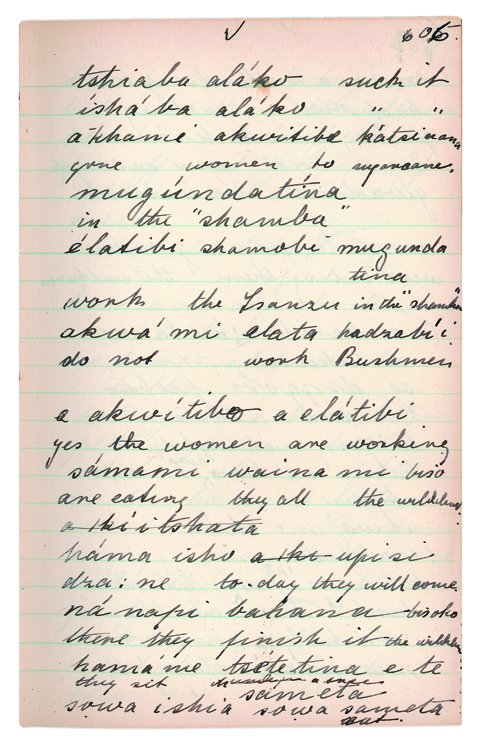 ✓ 606.
tshiaba aláko such it
íshába aláko " "
akhame akwitibe kátsinana
gone women to sugarcane.
mugúndatína
in the "shamba"
élatibi shamobe mugunda
tina
work the Isanzu in the "shamba"
akwá mi elata hadzabí'i
do not work Bushmen
a akwítibe a elátibi
yes the women are working
sámami waina mi biso
are eating they all the
a íkiítshata
háma isho a iki upisi
dza: ne to-day they will come.
ná napi bahana bisoko
there they finish it the
hamame tséte tina e te
they sit
sámeta
sowa ishia sowa sameta
eat.